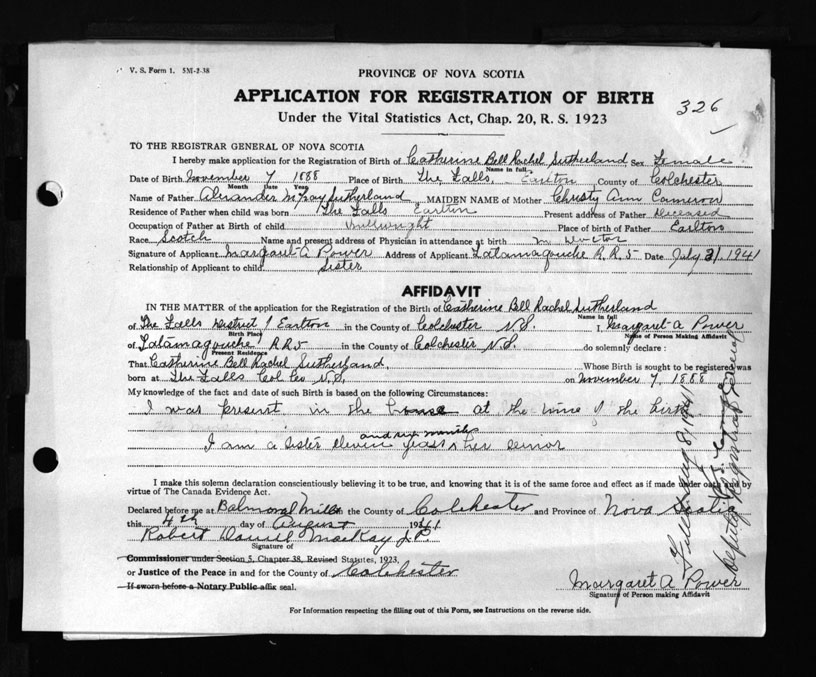 V. S. Form 1. 5M-2-38
PROVINCE OF NOVA SCOTIA
APPLICATION FOR REGISTRATION OF BIRTH
326
Under the Vital Statistics Act, Chap. 20, R. S. 1923
TO THE REGISTRAR GENERAL OF NOVA SCOTIA
I hereby make application for the Registration of Birth of Catherine Bell Rachel Sutherland Sex Female
Name in full
Date of Birth November 7 1888 Place of Birth The Falls, Earlton County of Colchester
Month Date Year
Name of Father Alexander McKay Sutherland MAIDEN NAME of Mother Christy Ann Cameron
Residence of Father when child was born The Falls Earlton Present address of Father Deceased
Occupation of Father at Birth of child Millwright Place of birth of Father Earlton
Race Scotch Name and present address of Physician in attendance at birth no Doctor
Signature of Applicant Margaret A Power Address of Applicant Tatamagouche R.R.5 Date July 1941
Relationship of Applicant to child Sister
AFFIDAVIT
IN THE MATTER of the application for the Registration of the Birth of Catherine Bell Rachel Sutherland
Name in full
of The Falls District Earlton in the County of Colchester N.S. I, Margaret A Power
Birth Place Name of Person Making Affidavit
of Tatamagouche RR5 in the County of Colchester N.S. do solemnly declare :
Present Residence
That Catherine Bell Rachel Sutherland. Whose Birth is sought to be registered was
born at The Falls Col Co N.S. on November 7, 1888
My knowledge of the fact and date of such Birth is based on the following Circumstances:
I was present in the house at the time of the birth
and six months
I am a sister eleven years her senior
I make this solemn declaration conscientiously believing it to be true, and knowing it is of the same force and effect as if made under oath and by
virtue of The Canada Evidence Act.
Declared before me at Balmoral Mills in the County of Colchester and Province of Nova Scotia
this 4th day of August 1941
Robert Daniel MacKay J.P.
Signature of
Commissioner under Section 5, Chapter 38, Revised Statutes, 1923,
or Justice of the Peace in and for the County of Colchester
If sworn before a Notary Public affix seal.
Margaret A Power
Signature of Person making Affidavit
For Information respecting the filling out of this Form, see Instructions on the reverse side.
Filed Aug 8, 1941
Deputy Registrar General